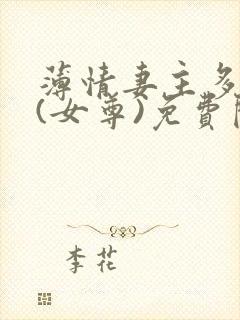 薄情妻主多
(女尊)免費
李花